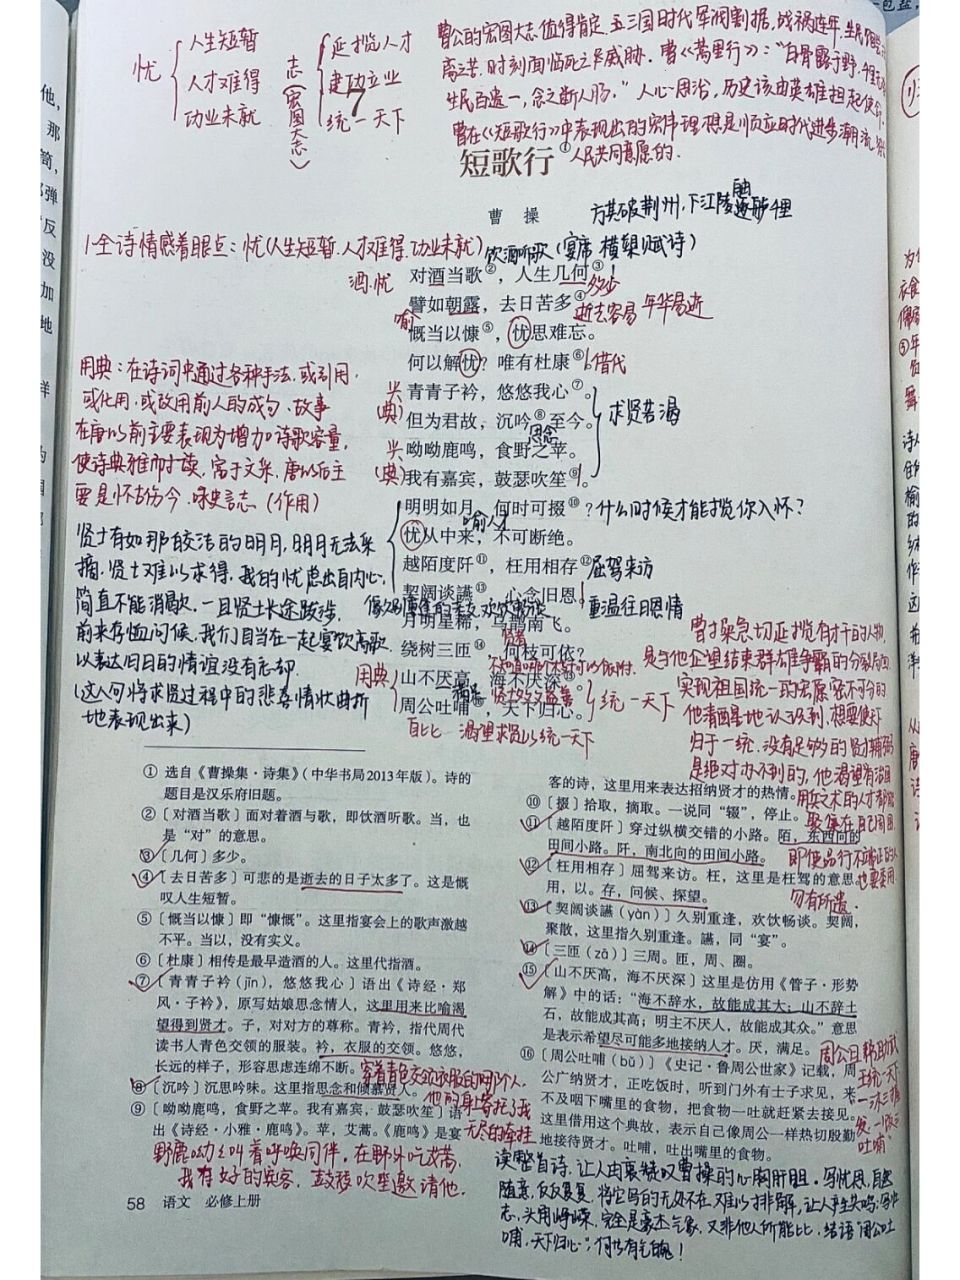 忧
人生短暂
人才难得
功业未就
志(宏图大志)
延揽人才
建功立业
统一天下
曹公的宏图大志值得肯定.五三国时代军阀割据,战祸连年,生民
离之苦.时刻面临死亡威胁.曹《蒿里行》:"白骨露于野,千里无
生民百遗一,念之断人肠."人心思治,历史该由英雄担起使命.
曹在《短歌行》中表现出的宏伟理想是顺应时代进步潮流
人民共同意愿的.
7
短歌行①
曹 操
方其破荆州,下江陵
1.全诗情感着眼点:忧(人生短暂.人才难得.功业未就)
饮酒听歌(宴席 横槊赋诗)
酒.忧
对酒当歌②,人生几何③!
多少
譬如朝露,去日苦多④。
喻
逝去容易 年华易逝
慨当以慷⑤,忧思难忘。
何以解忧?唯有杜康⑥。
借代
用典:在诗词中通过各种手法,或引用.
或化用.或改用前人的成句、故事
在唐以前主要表现为增加诗歌容量,
使诗典雅而才族,富于文采,唐以后主
要是怀古伤今.咏史言志(作用)
兴
(典)
青青子衿,悠悠我心⑦。
但为君故,沉吟⑧至今。
思念
求贤若渴
兴
(典)
呦呦鹿鸣,食野之苹。
我有嘉宾,鼓瑟吹笙⑨。
明明如月,何时可掇⑩?
什么时候才能揽你入怀?
喻人才
忧从中来,不可断绝。
越陌度阡⑪,枉用相存⑫。
屈驾来访
契阔谈䜩⑬,心念旧恩。
重温往日恩情
月明星稀,乌鹊南飞。
绕树三匝⑭,何枝可依?
贤者
贤士有如那皎洁的明月,明月无法采
摘.贤士难以求得.我的忧虑出自内心,
简直不能消歇.一旦贤士长途跋涉.
前来存恤问候.我们自当在一起宴饮高歌.
以表达旧日的情谊没有忘却.
(这八句将求贤过程中的悲喜情状曲折
地表现出来)
用典
山不厌高,海不厌深⑮。
贤才多多益善
周公吐哺⑯,天下归心。
统一天下
自比 渴望求贤以统一天下
曹操急切延揽有才干的人物
是与他企望结束群雄争霸的分裂局面
实现祖国统一的宏愿密不可分的
他清醒地认识到,想要使天下
归于一统.没有足够的贤才辅弼
是绝对办不到的,他渴望有治国
用兵之术的人才都能
聚集在自己周围
即使品行不端正的人
也要录用
勿有所遗.
① 选自《曹操集·诗集》(中华书局2013年版)。诗的
题目是汉乐府旧题。
② 〔对酒当歌〕面对着酒与歌,即饮酒听歌。当,也
是“对”的意思。
③ 〔几何〕多少。
④ 〔去日苦多〕可悲的是逝去的日子太多了。这是慨
叹人生短暂。
⑤ 〔慨当以慷〕即“慷慨”。这里指宴会上的歌声激越
不平。当以,没有实义。
⑥ 〔杜康〕相传是最早造酒的人。这里代指酒。
⑦ 〔青青子衿(jīn),悠悠我心〕语出《诗经·郑
风·子衿》,原写姑娘思念情人,这里用来比喻渴
望得到贤才。子,对对方的尊称。青衿,指代周代
读书人青色交领的服装。衿,衣服的交领。悠悠,
长远的样子,形容思虑连绵不断。
穿着青色交领衣服的那个人.
⑧ 〔沉吟〕沉思吟味。这里指思念和倾慕贤人。
他的身上寄托了我
⑨ 〔呦呦鹿鸣,食野之苹。我有嘉宾,鼓瑟吹笙〕语
出《诗经·小雅·鹿鸣》。苹,艾蒿。《鹿鸣》是宴
无尽的牵挂
野鹿呦呦叫着呼唤同伴.在野外吃艾蒿.
我有好的宾客.鼓瑟吹笙邀请他.
客的诗,这里用来表达招纳贤才的热情。
⑩ 〔掇〕拾取,摘取。一说同“辍”,停止。
⑪ 〔越陌度阡〕穿过纵横交错的小路。陌,东西向的
田间小路。阡,南北向的田间小路。
⑫ 〔枉用相存〕屈驾来访。枉,这里是枉驾的意思。
用,以。存,问候、探望。
⑬ 〔契阔谈䜩(yàn)〕久别重逢,欢饮畅谈。契阔,
聚散,这里指久别重逢。䜩,同“宴”。
⑭ 〔三匝(zā)〕三周。匝,周、圈。
⑮ 〔山不厌高,海不厌深〕这里是仿用《管子·形势
解》中的话:“海不辞水,故能成其大;山不辞土
石,故能成其高;明主不厌人,故能成其众。”意思
是表示希望尽可能多地接纳人才。厌,满足。
⑯ 〔周公吐哺(bǔ)〕《史记·鲁周公世家》记载,周
公广纳贤才,正吃饭时,听到门外有士子求见,来
不及咽下嘴里的食物,把食物一吐就赶紧去接见。
这里借用这个典故,表示自己像周公一样热切殷勤
地接待贤才。吐哺,吐出嘴里的食物。
周公旦,辅助武
王统一天下
一沐三捉
发.一饭三
吐哺
读整首诗.让人由衷赞叹曹操的心胸肝胆.写忧思,自然
随意,反反复复.将它写的无处不在,难以排解,让人产生共鸣;写壮
志,头角峥嵘,完全是豪杰气象.又非他人所能比.结语"周公吐
哺,天下归心",何其有气魄!
58 语文 必修上册